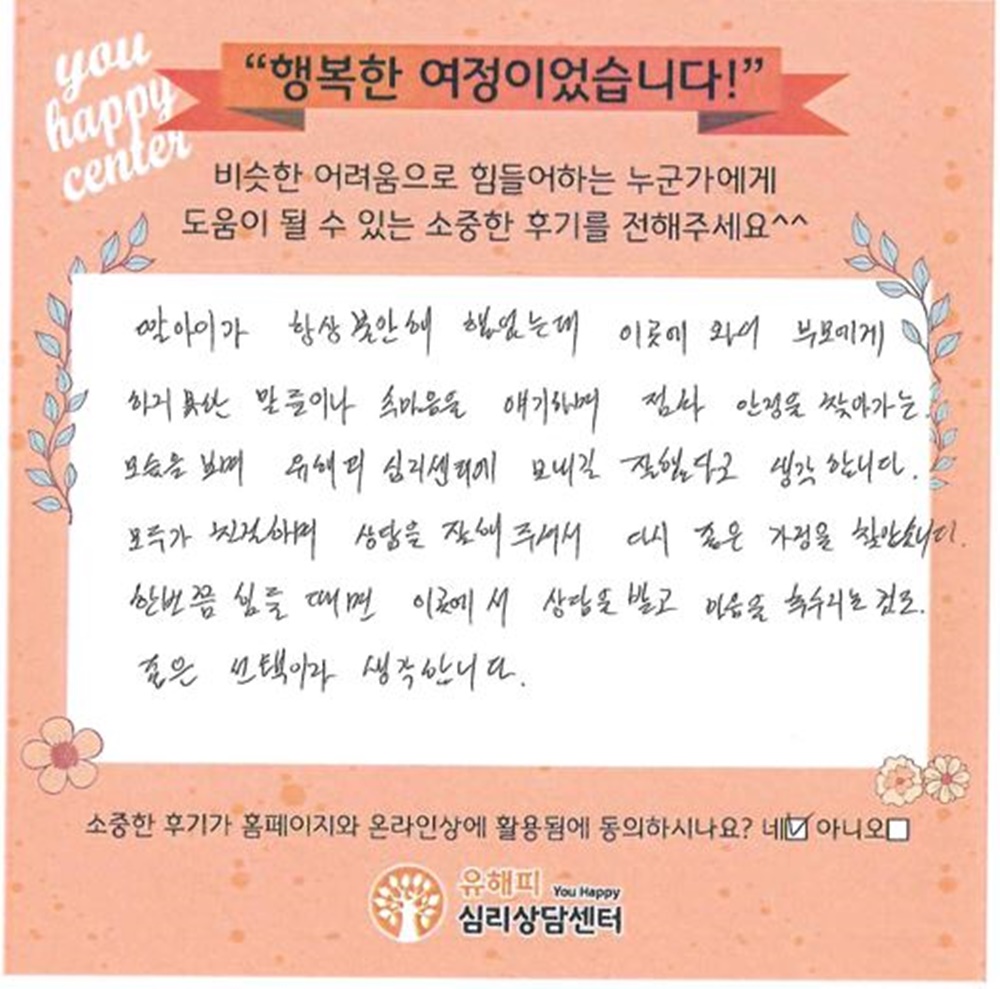 you
happy
center
“행복한 여정이었습니다!”
비슷한 어려움으로 힘들어하는 누군가에게
도움이 될 수 있는 소중한 후기를 전해주세요^^
딸아이가 항상 불안해 했었는데 이곳에 와서 부모에게
하지 못한 말들이나 속마음을 얘기하며 점차 안정을 찾아가는
모습을 보며 유해피 심리센터에 보내길 잘했다고 생각합니다.
모두가 친절하며 상담을 잘해 주셔서 다시 좋은 가정을 찾았습니다.
한번쯤 힘들 때면 이곳에서 상담을 받고 마음을 추수리는 것도.
좋은 선택이라 생각합니다.
소중한 후기가 홈페이지와 온라인상에 활용됨에 동의하시나요? 네☑ 아니오☐
유해피 You Happy
심리상담센터